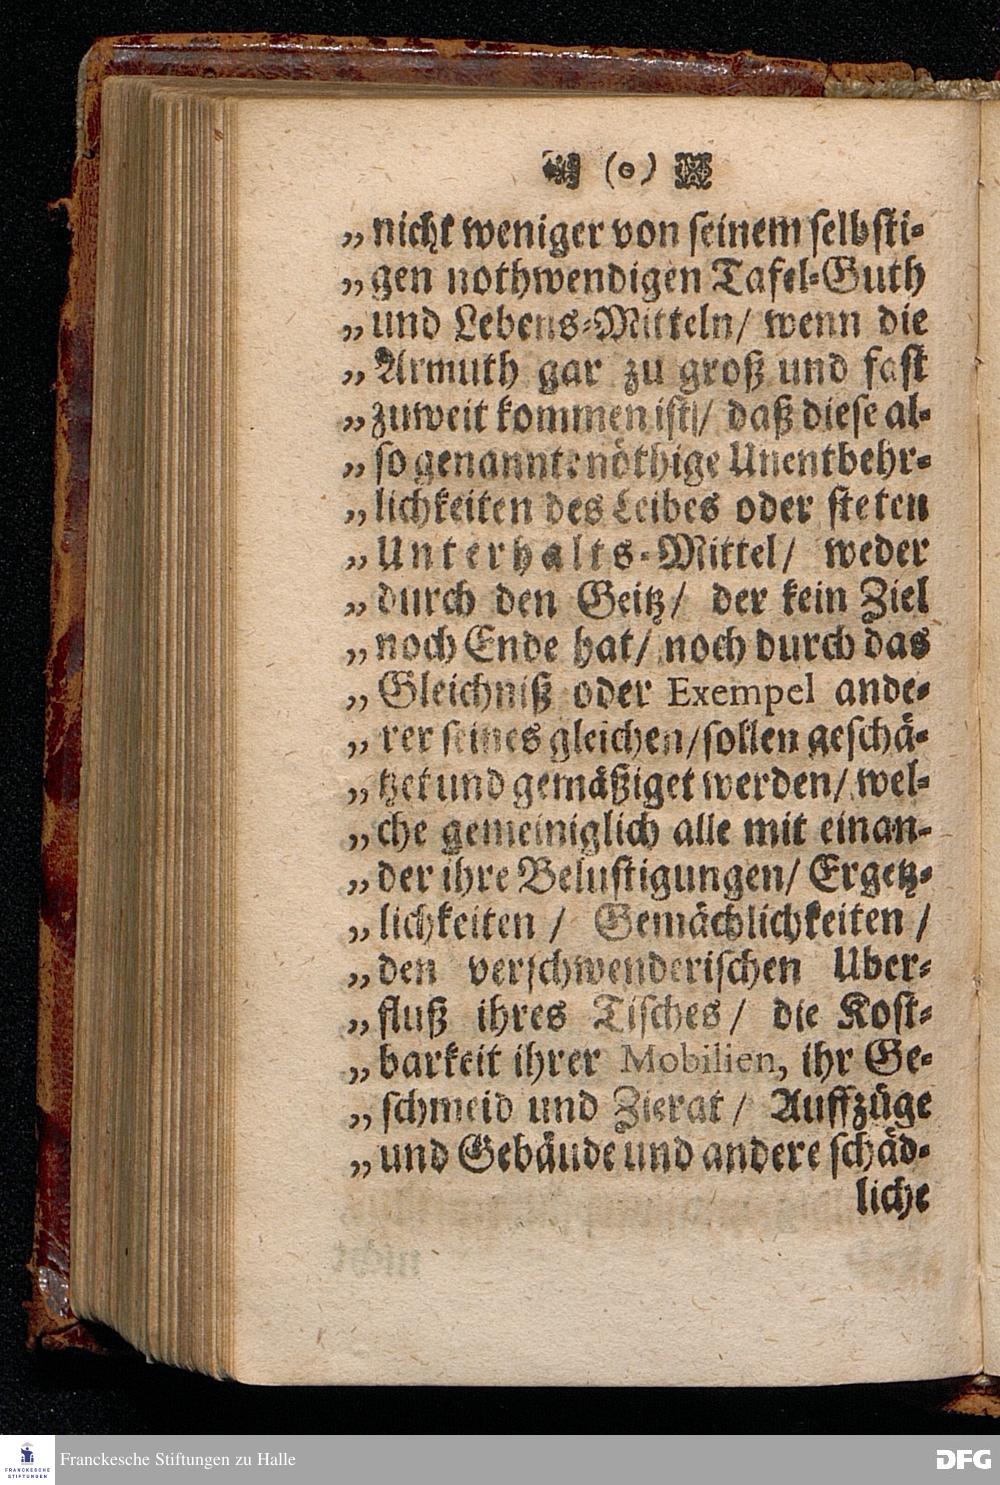 (o)
„ nicht weniger von seinem selbsti-
„ gen nothwendigen Tafel-Guth
„ und Lebens-Mitteln/ wenn die
„ Armuth gar zu groß und fast
„ zuweit kommen ist/ daß diese al-
„ so genannte nöthige Unentbehr-
„ lichkeiten des Leibes oder steten
„ Unterhalts-Mittel/ weder
„ durch den Geitz/ der kein Ziel
„ noch Ende hat/ noch durch das
„ Gleichniß oder Exempel ande-
„ rer seines gleichen/ sollen geschä-
„ tzet und gemäßiget werden/ wel-
„ che gemeiniglich alle mit einan-
„ der ihre Belustigungen/ Ergetz-
„ lichkeiten / Gemächlichkeiten /
„ den verschwenderischen Uber-
„ fluß ihres Tisches/ die Kost-
„ barkeit ihrer Mobilien, ihr Ge-
„ schmeid und Zierat / Auffzüge
„ und Gebäude und andere schäd-
liche
FRANCKESCHE STIFTUNGEN
Franckesche Stiftungen zu Halle
DFG